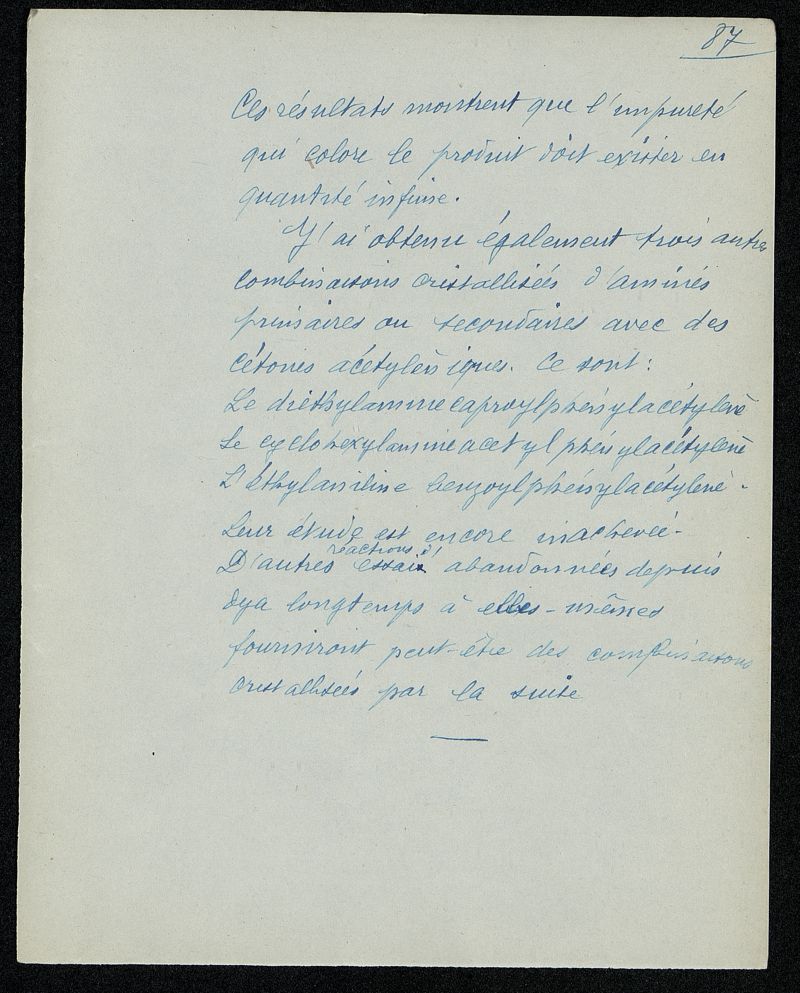 87
Ces résultats montrent que l'impureté
qui colore le produit doit exister en
quantité infime.
J'ai obtenu également trois autres
combinaisons cristallisées d'amines
primaires ou secondaires avec des
cétones acétyléniques. Ce sont:
Le diéthylaminecaproylphénylacétylène
Le cyclohexylamineacetylphénylacétylène
L'éthylaniline benzoylphénylacétylène.
Leur étude est encore inachevée.
réactions d'
D'autres essais abandonnées depuis
deja longtemps à elles-mêmes
fourniront peut-être des combinaisons
cristallisées par la suite